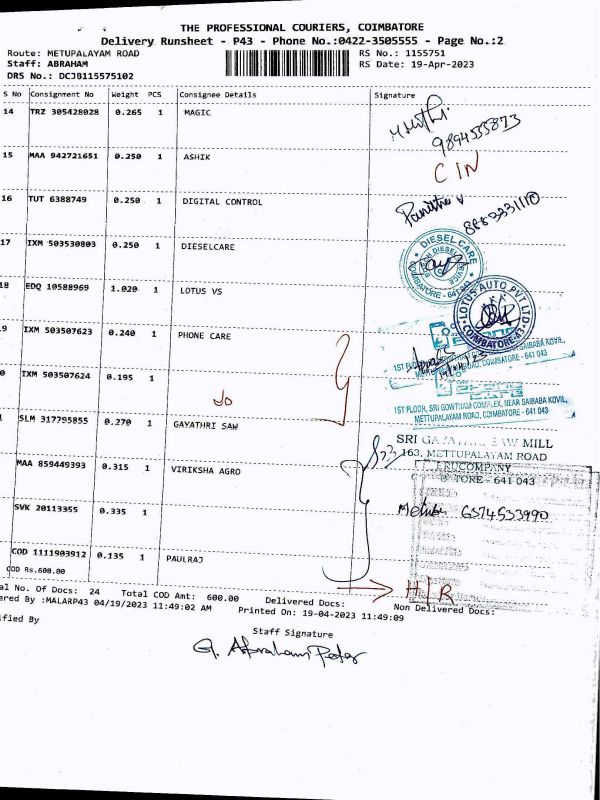 THE PROFESSIONAL COURIERS, COIMBATORE
Delivery Runsheet - P43 - Phone No.:0422-3505555 - Page No.:2
Route: METUPALAYAM ROAD RS No.: 1155751
Staff: ABRAHAM RS Date: 19-Apr-2023
DRS No.: DCJB115575102
S No Consignment No Weight PCS Consignee Details Signature
14 TRZ 305428028 0.265 1 MAGIC
9894535873
15 MAA 942721651 0.250 1 ASHIK
C IN
16 TUT 6388749 0.250 1 DIGITAL CONTROL
17 IXM 503530803 0.250 1 DIESELCARE
DIESEL CARE
COIMBATORE - 641
18 EDQ 10588969 1.020 1 LOTUS VS
LOTUS AUTO PVT LTD
COIMBATORE-43
9 IXM 503507623 0.240 1 PHONE CARE
1ST
SAIBABA KOVIL,
COIMBATORE - 641 043
0 IXM 503507624 0.195 1
do
1ST FLOOR, SRI GOWTHAM COMPLEX, NEAR SAIBABA KOVIL,
METTUPALAYAM ROAD, COIMBATORE - 641 043
SLM 317795855 0.270 1 GAYATHRI SAW
SRI GAYATHRI SAW MILL
163, METTUPALAYAM ROAD
TORE - 641 043
MAA 859449393 0.315 1 VIRIKSHA AGRO
SVK 20113355 0.335 1
6374533990
COD 1111903912 0.135 1 PAULRAJ
COD Rs.600.00
H/R
al No. Of Docs: 24 Total COD Amt: 600.00 Delivered Docs: Non Delivered Docs:
ered By :MALARP43 04/19/2023 11:49:02 AM Printed On: 19-04-2023 11:49:09
ified By
Staff Signature
G. Abraham Peter